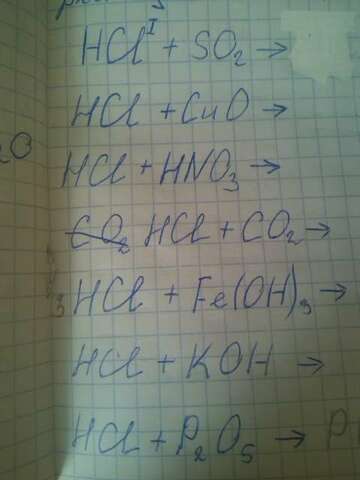 HCl^I + SO₂ →
HCl + CuO →
HCl + HNO₃ →
CO₂ HCl + CO₂ →
3HCl + Fe(OH)₃ →
HCl + KOH →
HCl + P₂O₅ → P